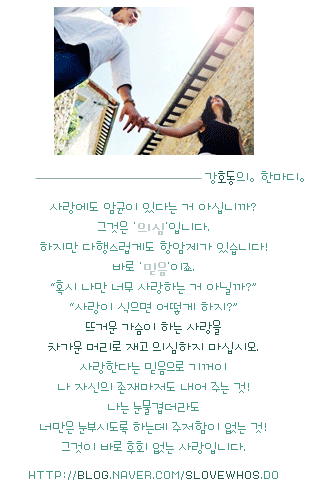 강호동의。한마디。
사랑에도 암균이 있다는 거 아십니까?
그것은 '의심'입니다.
하지만 다행스럽게도 항암제가 있습니다!
바로 '믿음'이죠.
"혹시 나만 너무 사랑하는 거 아닐까?"
"사랑이 식으면 어떻게 하지?"
뜨거운 가슴이 하는 사랑을
차가운 머리로 재고 의심하지 마십시오.
사랑한다는 믿음으로 기꺼이
나 자신의 존재마저도 내어 주는 것!
나는 눈물겹더라도
너만은 눈부시도록 하는데 주저함이 없는 것!
그것이 바로 후회 없는 사랑입니다.
HTTP://BLOG.NAVER.COM/SLOVEWHOS.DO